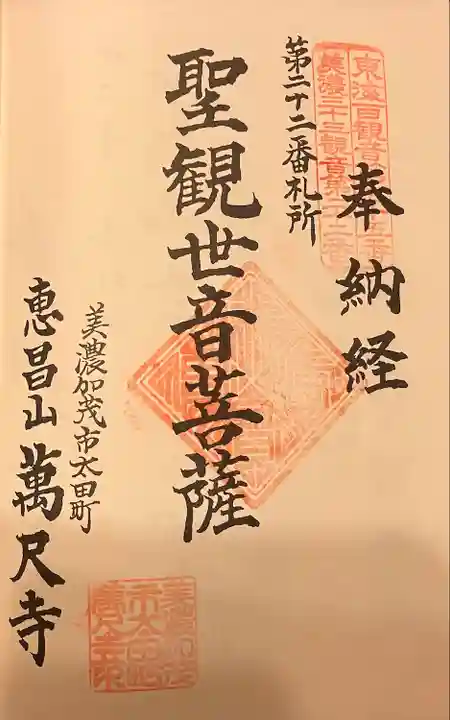 奉納経
美濃三十三観音第二十二番
第二十二番札所
聖観世音菩薩
美濃加茂市太田町
恵昌山萬尺寺